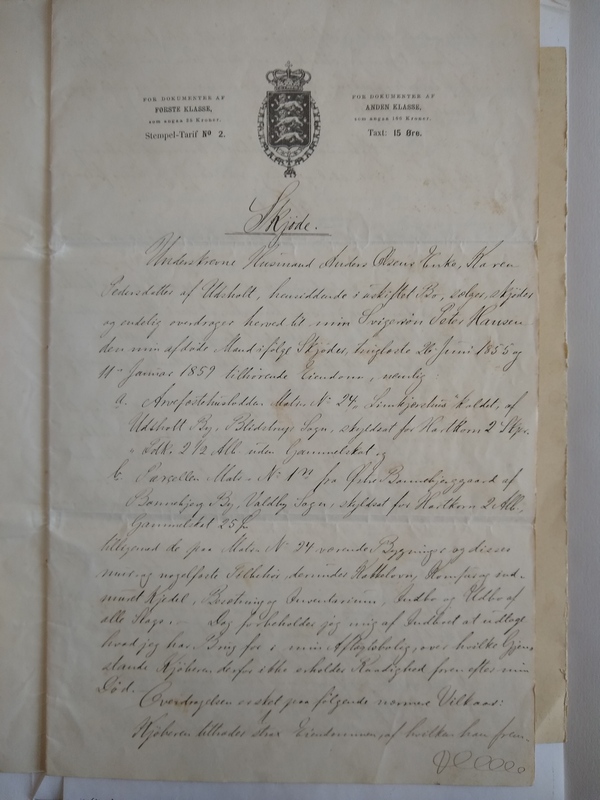 FOR DOKUMENTER AF
FØRSTE KLASSE,
som angaa 25 Kroner.
Stempel-Tarif No 2.
FOR DOKUMENTER AF
ANDEN KLASSE,
som angaa 100 Kroner.
Taxt: 15 Øre.
Skjøde.
Underskrevne Husmand Anders Olsens Enke, Karen
Pedersdatter af Udsholt, hensiddende i uskiftet Bo, sælger, skjøder
og endelig overdrager herved til min Svigersøn Peter Hansen
den min afdøde Mand ifølge Skjøder, tinglæste 26 Juni 1855 og
11 Januar 1859 tilhørende Eiendom, nemlig:
a. Arvefæstehuslodden Matr. No 24, kaldet, af
Udsholt By, Blidstrup Sogn, skyldsat for Hartkorn 2 Skpr.
Fdk. 2 1/2 Alb. uden Gammelskat og
b. Parcellen Matr. No 1 fra af
By, Valdby Sogn, skyldsat for Hartkorn 2 Alb.
Gammelskat 25
tilligemed de paa Matr. No 24 værende Bygninger og disses
mur- og nagelfaste Tilbehør, derunder Kakkelovn, Komfur og ind-
muret Kjedel, Besætning og Inventarium, Indbo og Udbo af
alle Slags. - Dog forbeholder jeg mig af Indboet at udtage
hvad jeg har Brug for i min Aftægtsbolig, over hvilke Gjen-
stande Kjøberen derfor ikke erholder Raadighed førend efter min
Død.
Overdragelsen er sket paa følgende nærmere Vilkaar:
Kjøberen tiltræder strax Eiendommen, af hvilken han frem-